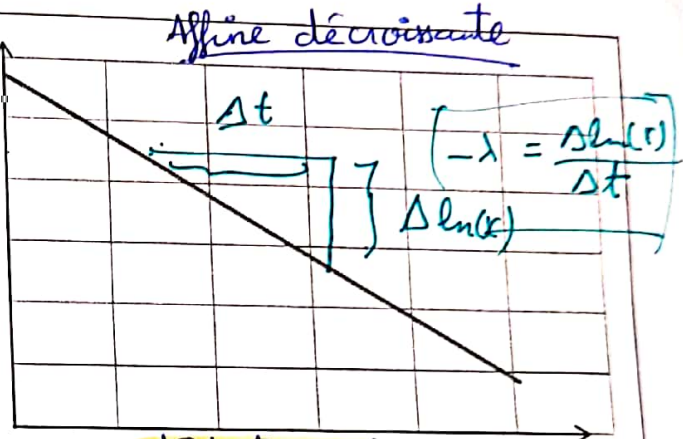 Affine décroissante
Δt
-λ = Δln(r)/Δt
Δln(r)